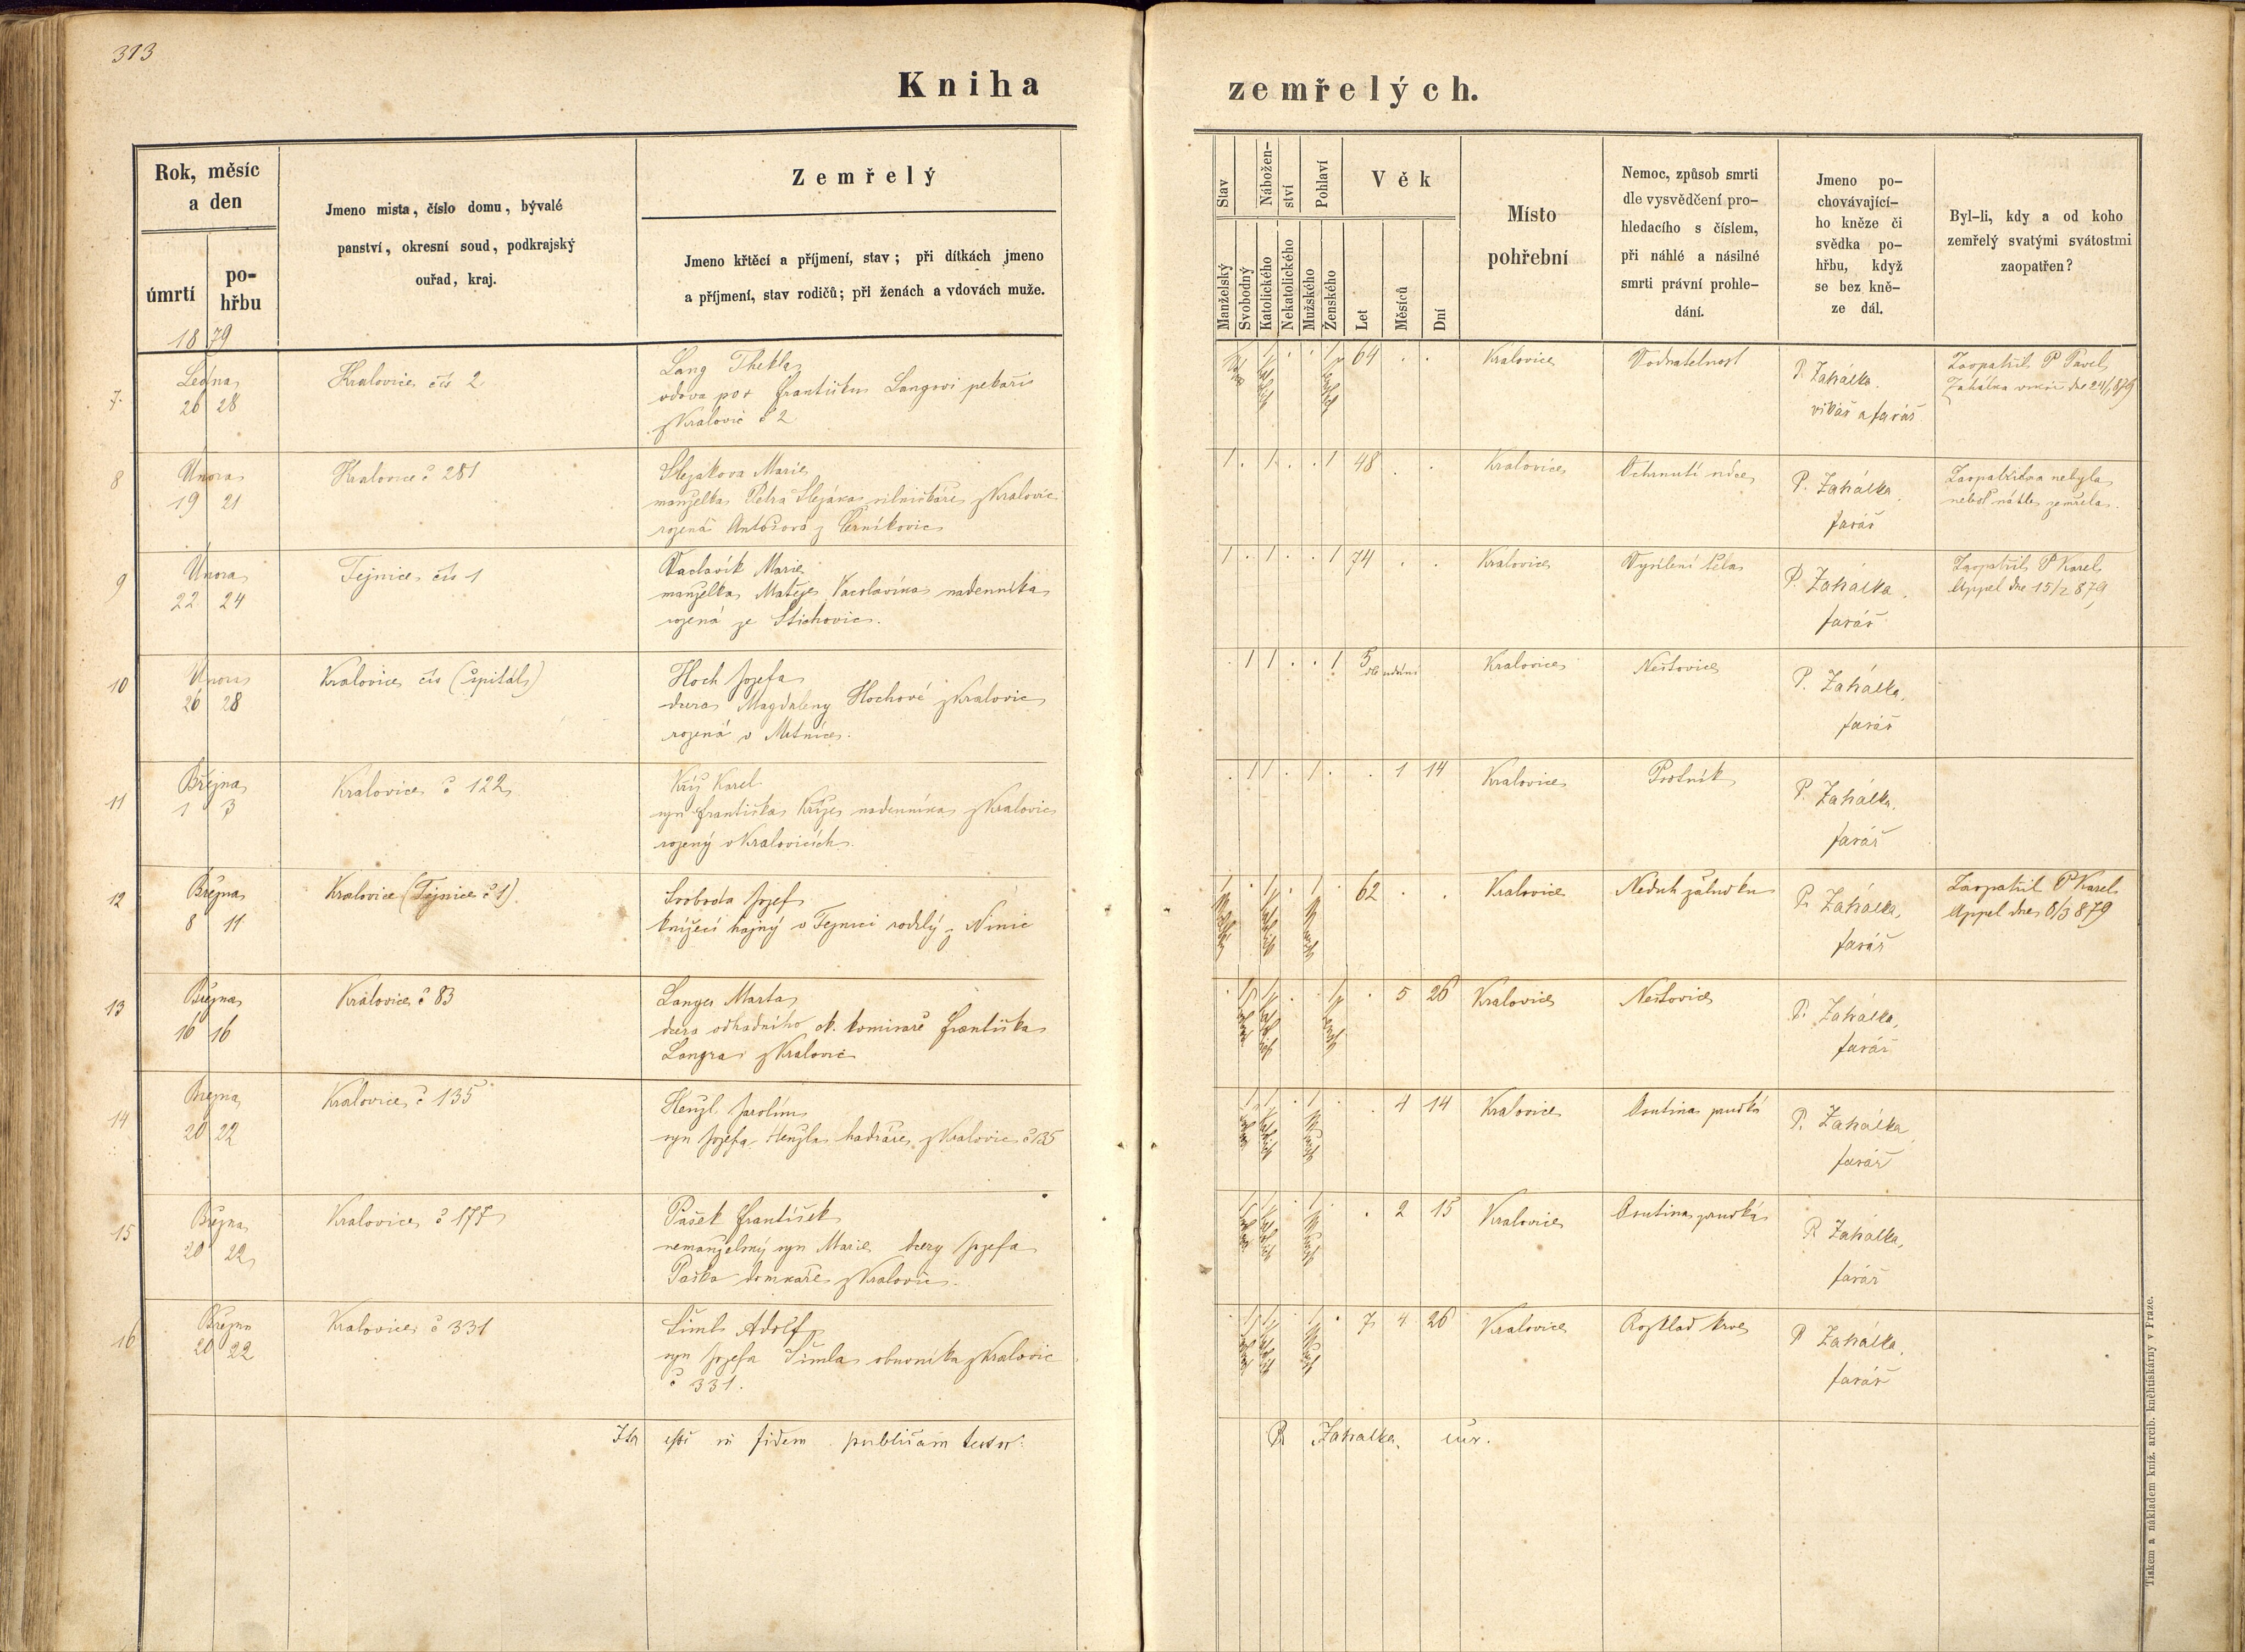 313
Kniha zemřelých.
Rok, měsíc a den
úmrtí
pohřbu
1879
Jmeno mista, číslo domu, bývalé
panství, okresní soud, podkrajský
ouřad, kraj.
Zemřelý
Jmeno křtěcí a příjmení, stav; při dítkách jmeno
a příjmení, stav rodičů; při ženách a vdovách muže.
Stav
Manželský
Svobodný
Nábožen-
ství
Katolického
Nekatolického
Pohlaví
Mužského
Ženského
Věk
Let
Měsíců
Dní
Místo
pohřební
Nemoc, způsob smrti
dle vysvědčení pro-
hledacího s číslem,
při náhlé a násilné
smrti právní prohle-
dání.
Jmeno po-
chovávající-
ho kněze či
svědka po-
hřbu, když
se bez kně-
ze dál.
Byl-li, kdy a od koho
zemřelý svatými svátostmi
zaopatřen?
7. Ledna 26 28
Kralovice čís 2
Lang Thekla
vdova po Františku Langovi pekaři
z Kralovic č 2
64 . .
Kralovice
Vodnatelnost
P. Zahálka.
vikář a farář
Zaopatřil P Pavel
Zahálka vikář dne 24/1 879
8 Února 19 21
Kralovice č 281
Slejakova Marie
manželka Petra Slejáka silničáře z Kralovic
rozená Antošová z Černíkovic
1 . 1 . . 1 48 . .
Kralovice
Ochrnutí srdce
P. Zahálka.
farář
Zaopatřena nebyla
neboť náhle zemřela.
9 Února 22 24
Tejnice čís 1
Vaclavík Marie
manželka Matěje Vaclavíka nadenníka
rozená ze Štichovic.
1 . 1 . . 1 74 . .
Kralovice
Vysílení těla
P. Zahálka.
farář
Zaopatřil P Karel
Appel dne 15/2 879
10 Února 26 28
Kralovice čís (špitál)
Hoch Jozefa
dcera Magdaleny Hochové z Kralovic
rozená v Mutnice.
. 1 1 . . 1 5
Kralovice
Neštovice
P. Zahálka,
farář
11 Března 1 3
Kralovice č 122
Kříž Karel
syn Františka Kříže nadenníka z Kralovic
rozený v Kralovicích.
. 1 1 . 1 . . 1 14
Kralovice
Psotník
P. Zahálka.
farář
12 Března 8 11
Kralovice (Tejnice č 1).
Svoboda Jozef
knížecí hajný v Tejnici rodilý z Ninic
62 . .
Kralovice
Neduh žaludku
P. Zahálka,
farář
Zaopatřil P Karel
Appel dne 8/3 879
13 Března 16 16
Kralovice č 83
Langer Marta
dcera odhadního ok. komisaře Františka
Langra z Kralovic
. 5 26
Kralovice
Neštovice
P. Zahálka,
farář
14 Března 20 22
Kralovice č 135
Henzl Jarolím
syn Jozefa Henzla hadráře z Kralovic č 135
. 4 14
Kralovice
Osutina prudká
P. Zahálka
farář
15 Března 20 22
Kralovice č 177
Pašek František
nemanželský syn Marie dcery Jozefa
Paška domkaře z Kralovic.
. 2 15
Kralovice
Osutina prudká
P. Zahálka,
farář
16 Března 20 22
Kralovice č 331
Šiml Adolf
syn Jozefa Šimla obuvníka z Kralovic
č 331.
7 4 26
Kralovice
Rozklad krve
P Zahálka.
farář
Ita esse in fidem publicam testor:
P. Zahalka, cur.
Tiskem a nákladem kníž. arcib. knihtiskárny v Praze.